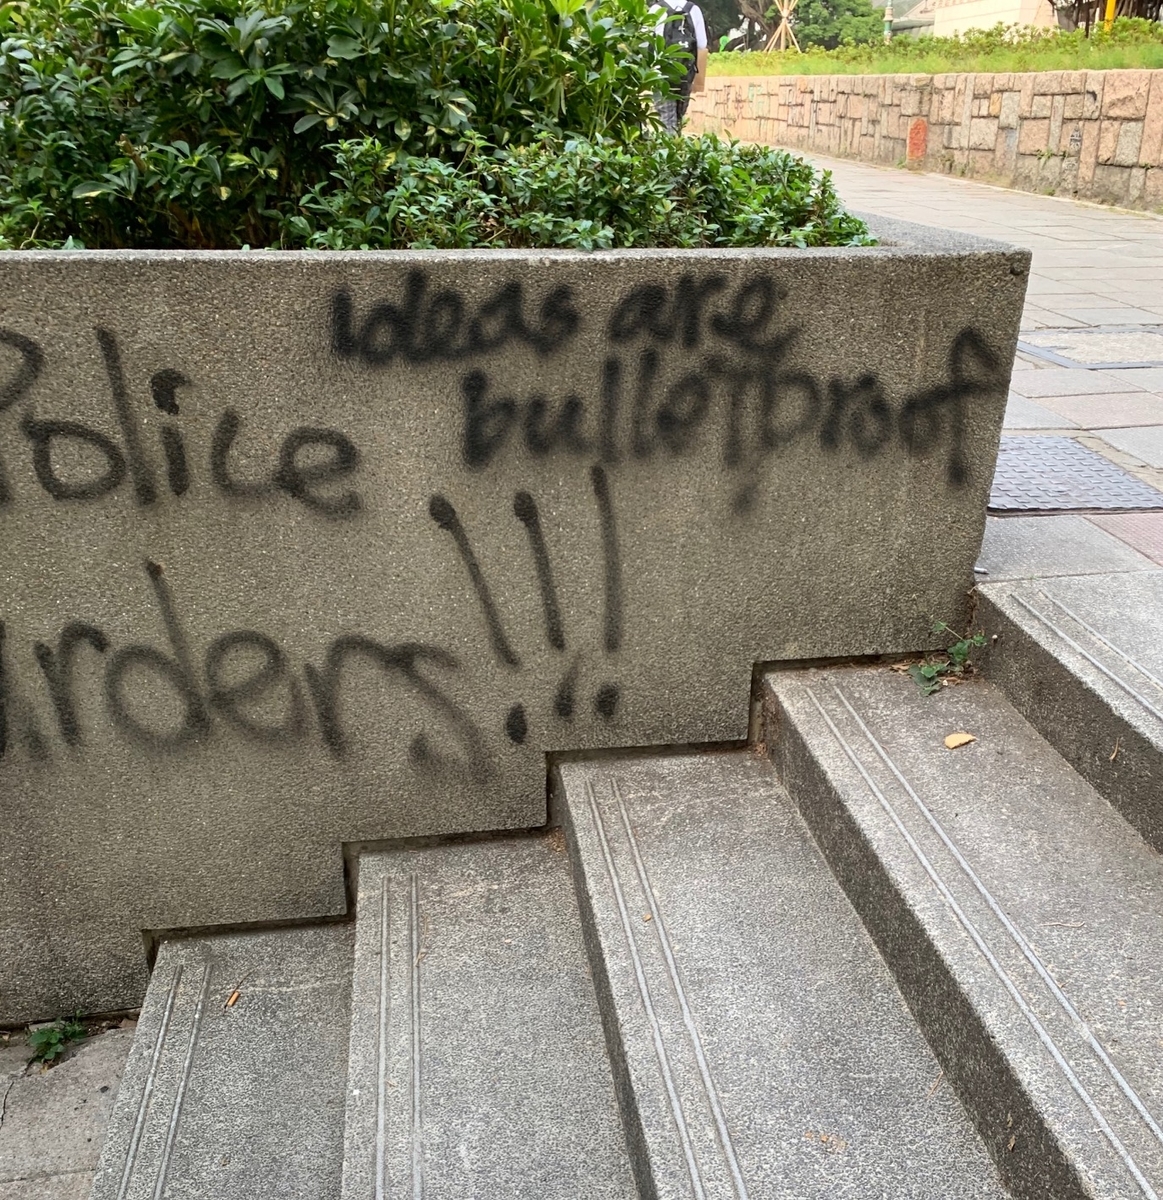 ideas are
bulletproof
Police
urders!!!